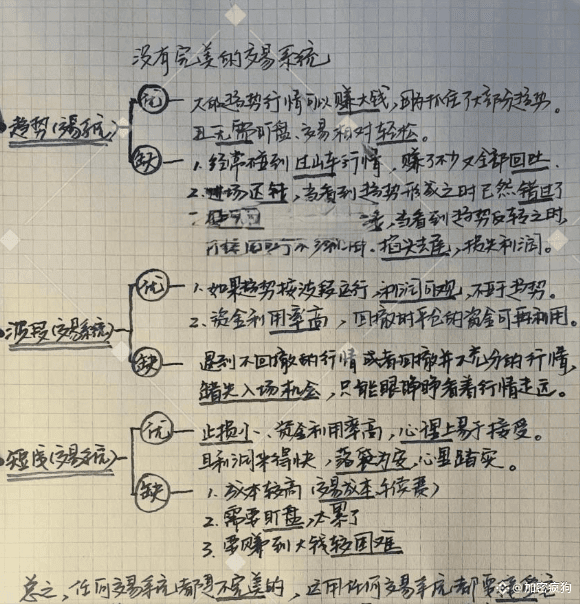 没有完美的交易系统
趋势(交易系统)
优
大的趋势行情可以赚大钱,因为抓住了大部分趋势。
且无需盯盘、交易相对轻松。
缺
1. 经常碰到过山车行情,赚了不少又全部回吐.
2. 进场迟钝,当看到趋势形成之时已然错过了
,当看到趋势反转之时,
损失去尾,损失利润。
波段(交易系统)
优
1. 如果趋势按波段运行,利润可观,不亚于趋势。
2. 资金利用率高,回撤时平仓的资金可再利用。
缺
遇到不回撤的行情或者回撤并不充分的行情,
错失入场机会,只能眼睁睁看着行情走远。
短线(交易系统)
优
止损小、资金利用率高,心理上易于接受。
且利润来得快,落袋为安,心里踏实。
缺
1. 成本较高(交易成本手续费)
2. 需要盯盘,太累了
3. 要赚到大钱较困难
总之,任何交易系统都是不完美的,运用任何交易系统都要
@加密疯狗